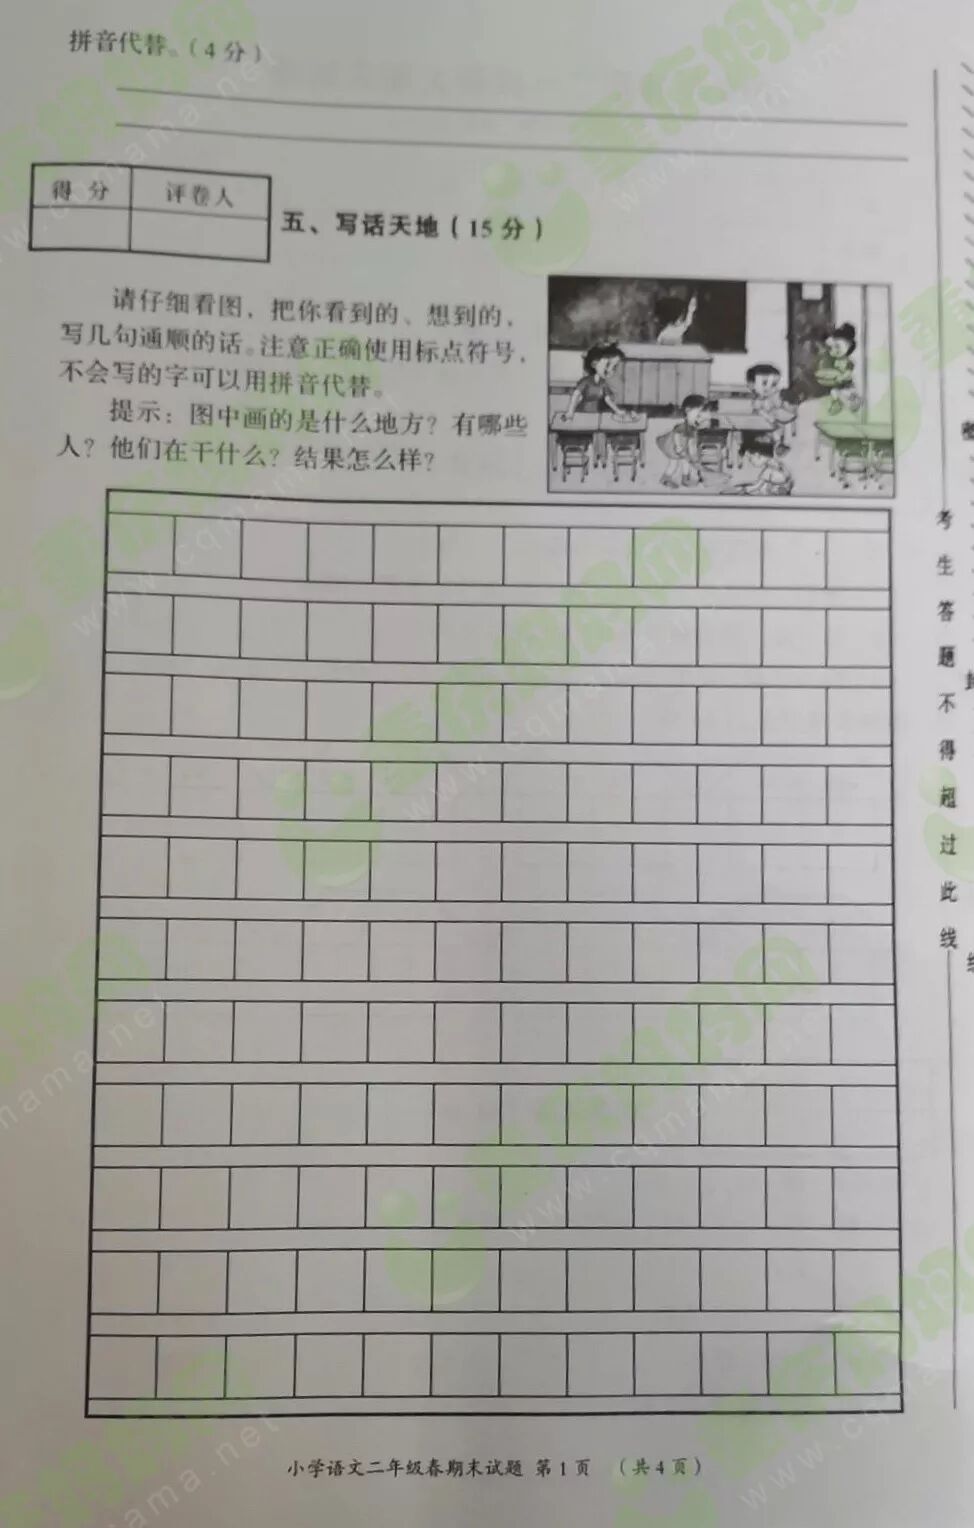 拼音代替。（4分）
得分 评卷人
五、写话天地（15分）
请仔细看图，把你看到的、想到的，
写几句通顺的话。注意正确使用标点符号，
不会写的字可以用拼音代替。
提示：图中画的是什么地方？有哪些
人？他们在干什么？结果怎么样？
考生答题不得超过此线
小学语文二年级春期末试题 第1页 （共4页）
重庆妈妈网
www.cqmama.net